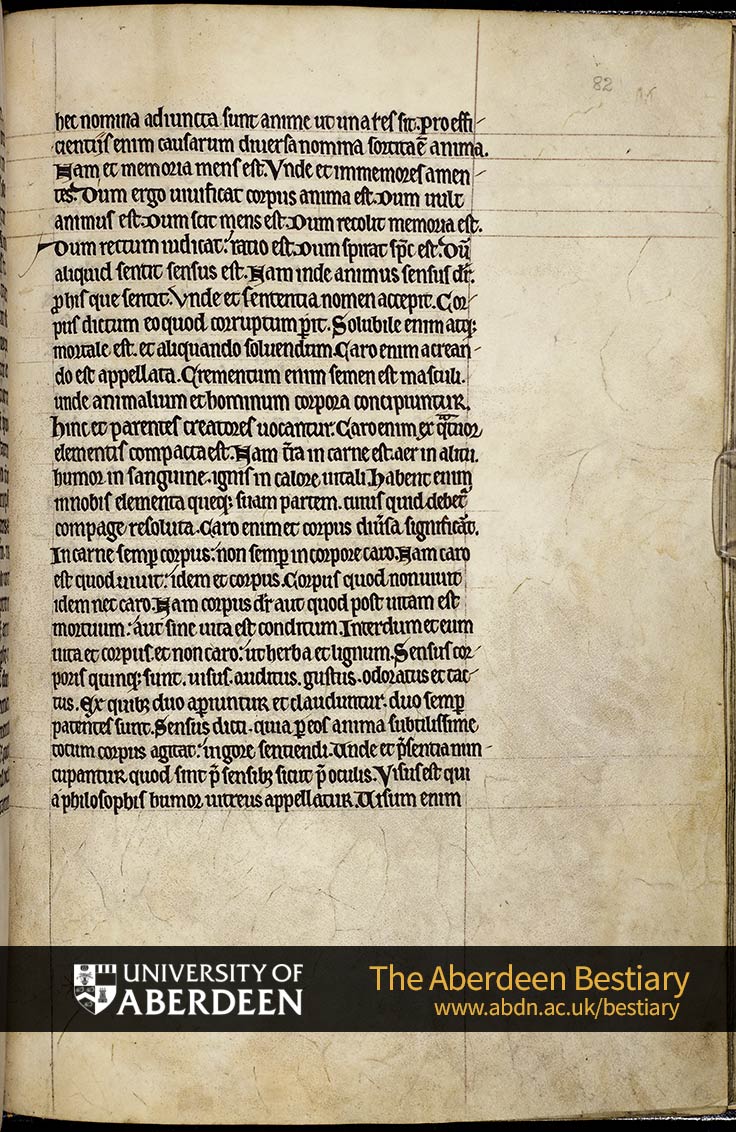 82
hec nomina adiuncta sunt anime ut una res sit. Pro effi-
cientiis enim causarum diuersa nomina sortita ē anima.
Nam et memoria mens est. Vnde et immemores amen-
tes. Dum ergo uiuificat corpus anima est. Dum uult
animus est. Dum scit mens est. Dum recolit memoria est.
Dum rectum iudicat: ratio est. Dum spirat sp̄c est. Dū
aliquid sentit sensus est. Nam inde animus sensus dr̄.
ꝓ his que sentit. Vnde et sententia nomen accepit. Cor-
pus dictum eo quod corruptum ꝑit. Solubile enim atqꝫ
mortale est. et aliquando soluendum. Caro enim a crean-
do est appellata. Crementum enim semen est masculi.
unde animalium et hominum corpora concipiuntur.
hinc et parentes creatores uocantur. Caro enim ex qͣtuor
elementis compacta est. Nam t̄ra in carne est. aer in alitu.
humor in sanguine. ignis in calore uitali. Habent enim
in nobis elementa queqꝫ suam partem. cuius quid debet̄
compage resoluta. Caro enim et corpus diūsa significāt.
In carne semꝑ corpus: non semꝑ in corpore caro. Nam caro
est quod uiuit: idem et corpus. Corpus quod non uiuit
idem nec caro. Nam corpus dr̄ aut quod post uitam est
mortuum: aut sine uita est conditum. Interdum et cum
uita et corpus. et non caro: ut herba et lignum. Sensus cor-
poris quinqꝫ sunt. uisus. auditus. gustus. odoratus et tac-
tus. Ex quibꝫ duo aꝑiuntur et clauduntur. duo semꝑ
patentes sunt. Sensus dicti. quia ꝑ eos anima subtilissime
totum corpus agitat: uigore sentiendi. Unde et p̄sentia nun-
cupantur quod sint p̄ sensibꝫ sicut p̄ oculis. Visus est qui
a philosophis humor uitreus appellatur. Uisum enim
UNIVERSITY OF
ABERDEEN
The Aberdeen Bestiary
www.abdn.ac.uk/bestiary